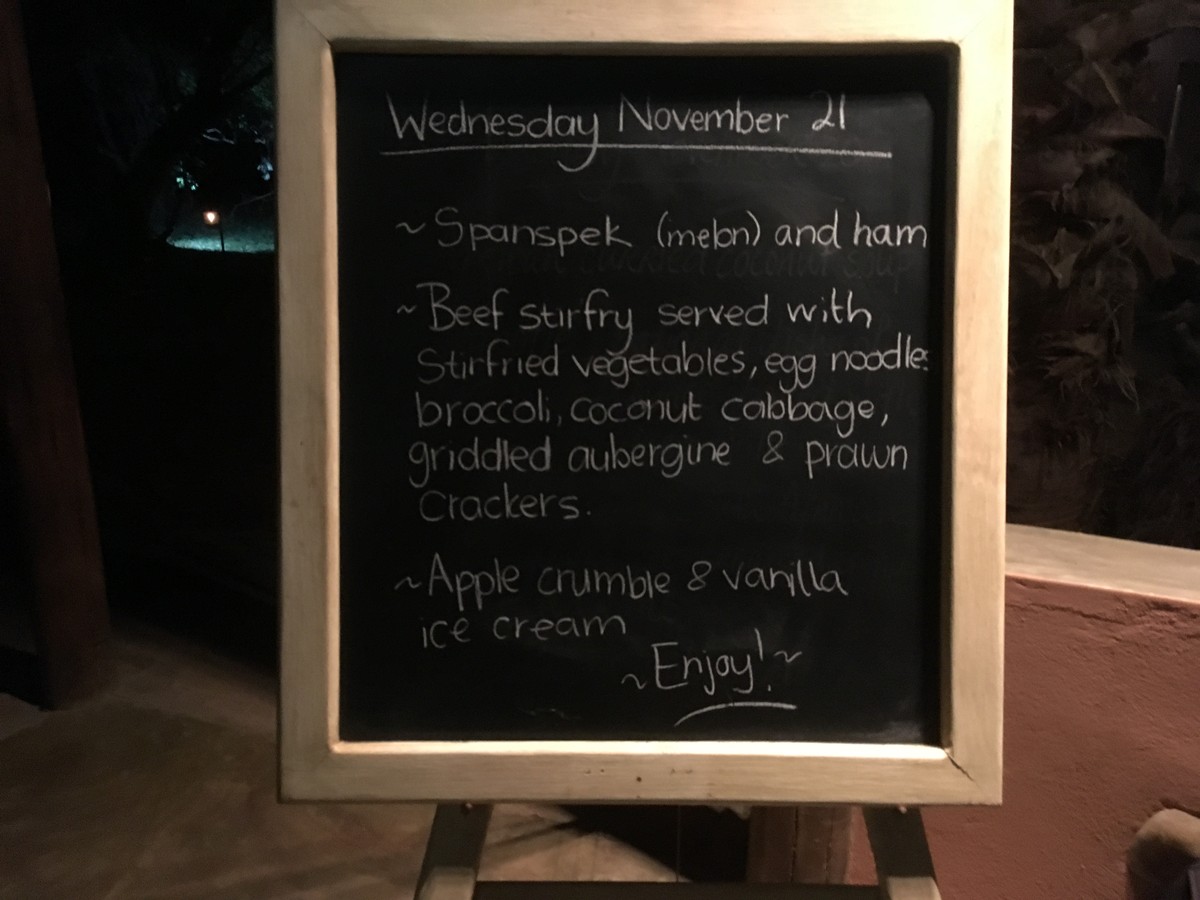 Wednesday November 21
~ Spanspek (melon) and ham
~ Beef stirfry served with
Stirfried vegetables, egg noodles
broccoli, coconut cabbage,
griddled aubergine & prawn
Crackers.
~ Apple crumble & vanilla
ice cream
~ Enjoy! ~